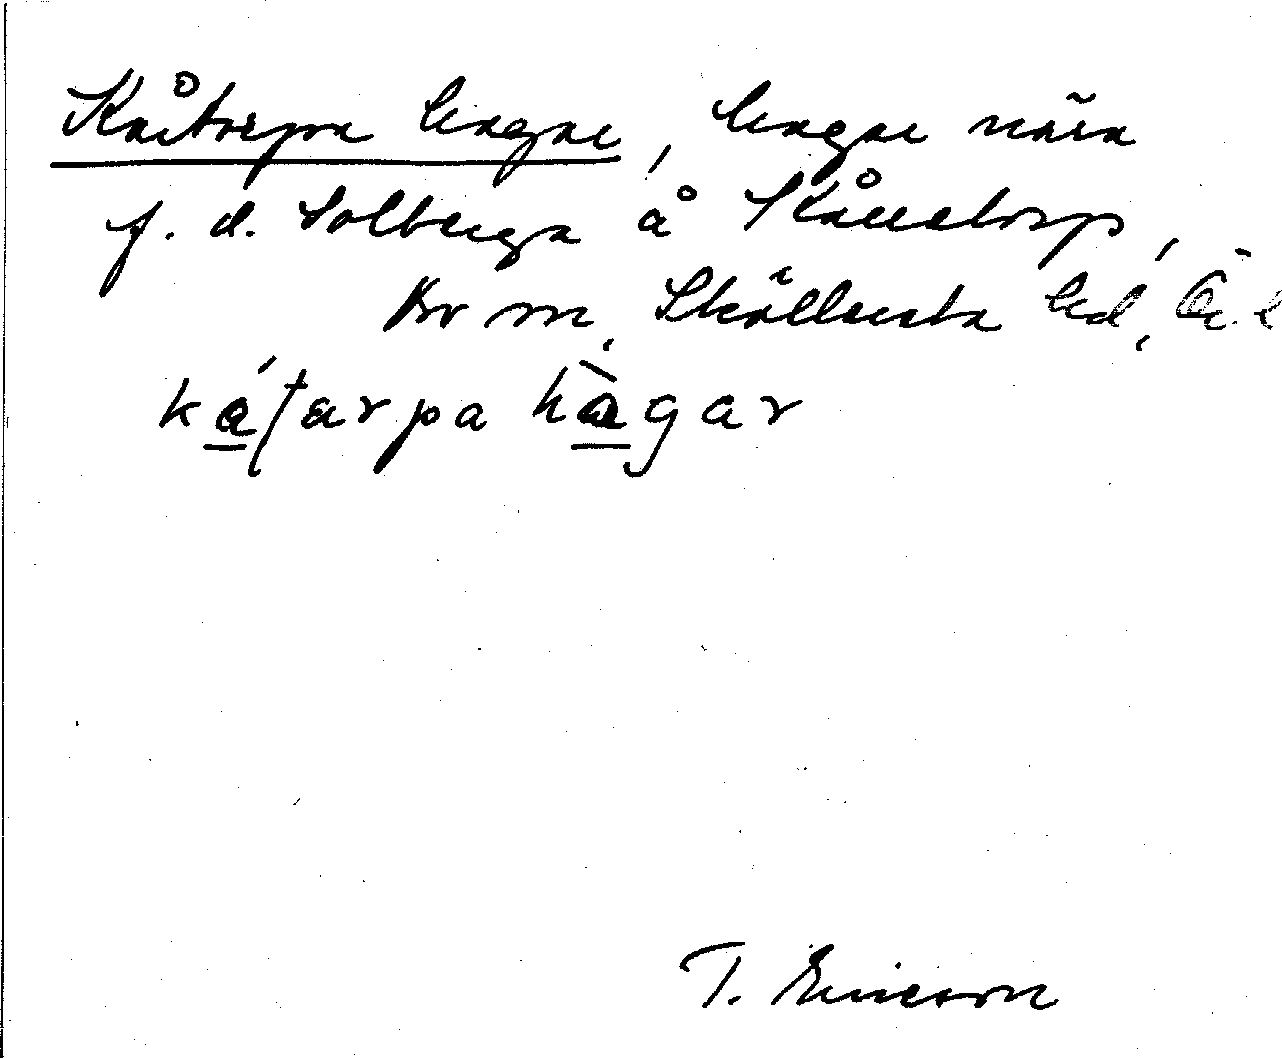 Kåtorpa hagar, hagar nära
f. d. Solberga å Skåletorp,
Kv m, Sköllersta hd,
kátarpa hàgar
T. Ericson